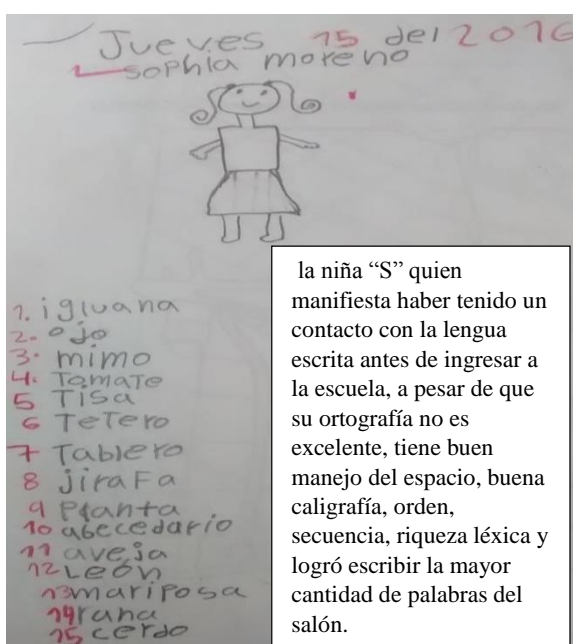 Jueves 15 del 2016
sophia moreno
1. igluana
2. ojo
3. mimo
4. Tomate
5 Tisa
6 TeTero
7 Tablero
8 jiraFa
9 Planta
10 abecedario
11 aveja
12 León
13 mariposa
14 rana
15 cerdo
la niña “S” quien
manifiesta haber tenido un
contacto con la lengua
escrita antes de ingresar a
la escuela, a pesar de que
su ortografía no es
excelente, tiene buen
manejo del espacio, buena
caligrafía, orden,
secuencia, riqueza léxica y
logró escribir la mayor
cantidad de palabras del
salón.